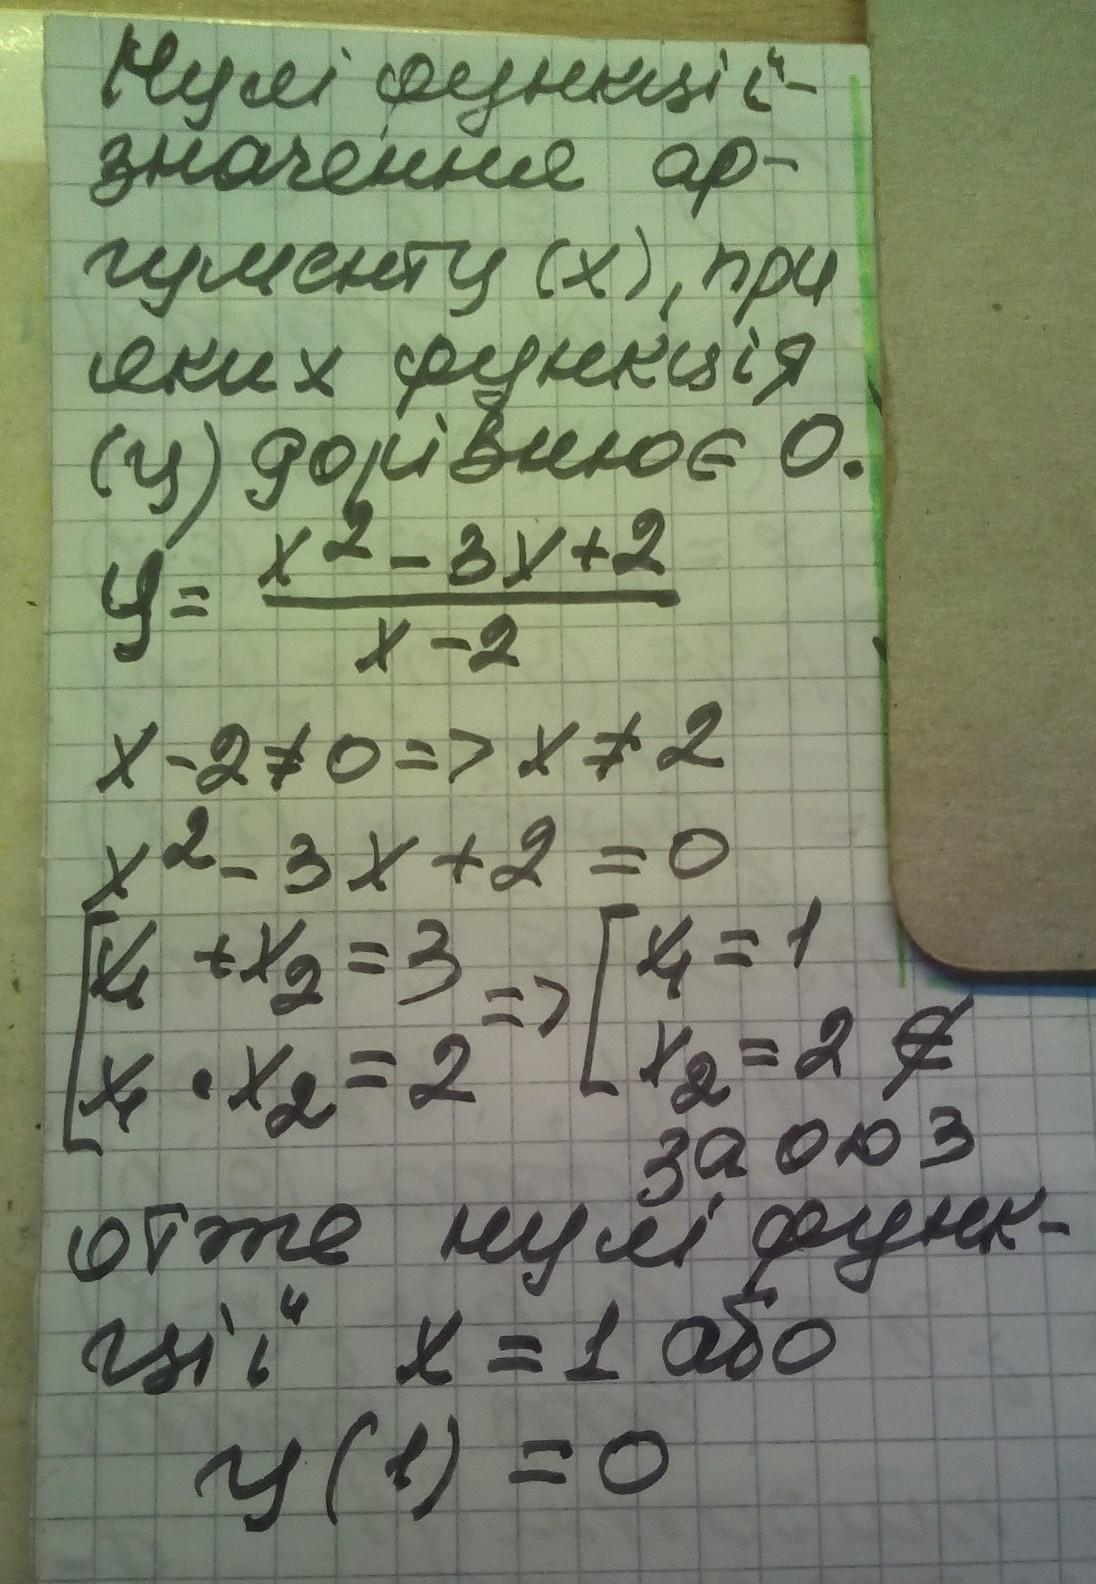 Нулі функції -
значення ар-
гументу (х), при
яких функція
(у) дорівнює 0.
y = \frac{x^2 - 3x + 2}{x - 2}
x - 2 ≠ 0 => x ≠ 2
x^2 - 3x + 2 = 0
[x_1 + x_2 = 3 => [x_1 = 1
x_1 · x_2 = 2 x_2 = 2 ∉
за ОДЗ
отже нулі функ-
ції x = 1 або
y(1) = 0